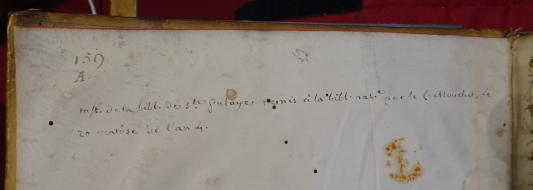 159
A.
mss. de la bibl. de Ste palaye, remis à la bibl. natle par le C. Mouchet, le
20 ventôse de l'an 4.